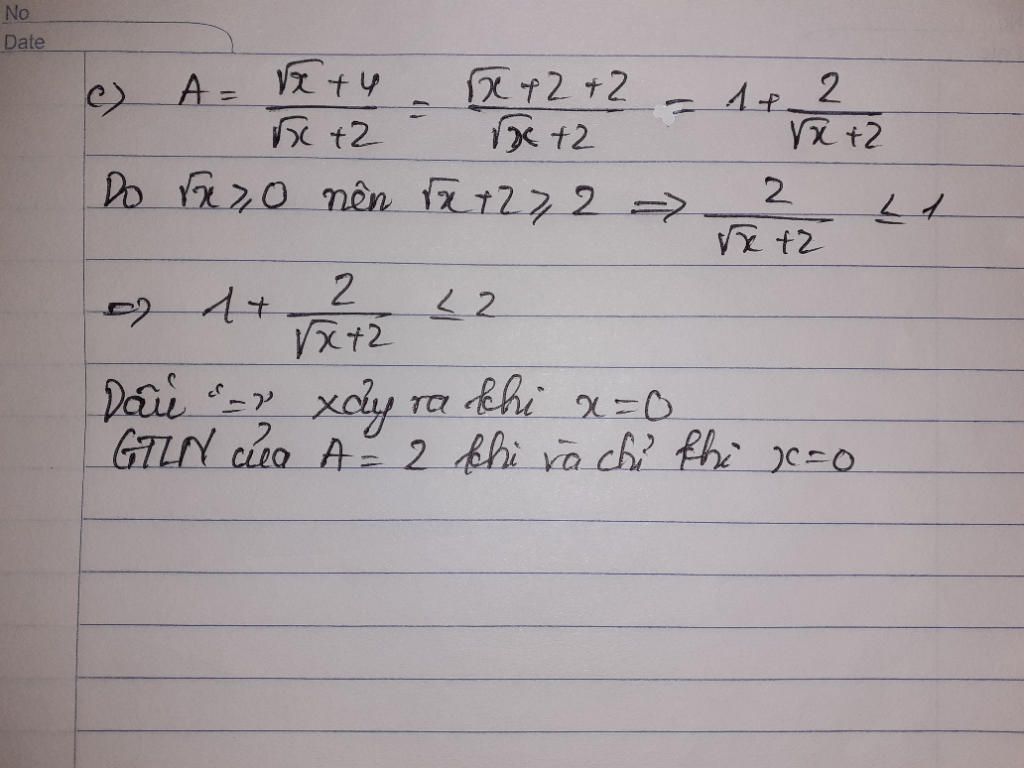 No
Date
c) A = (√x + 4)/(√x + 2) = (√x + 2 + 2)/(√x + 2) = 1 + 2/(√x + 2)
Do √x ≥ 0 nên √x + 2 ≥ 2 => 2/(√x + 2) ≤ 1
=> 1 + 2/(√x + 2) ≤ 2
Dấu "=" xảy ra khi x = 0
GTLN của A = 2 khi và chỉ khi x = 0